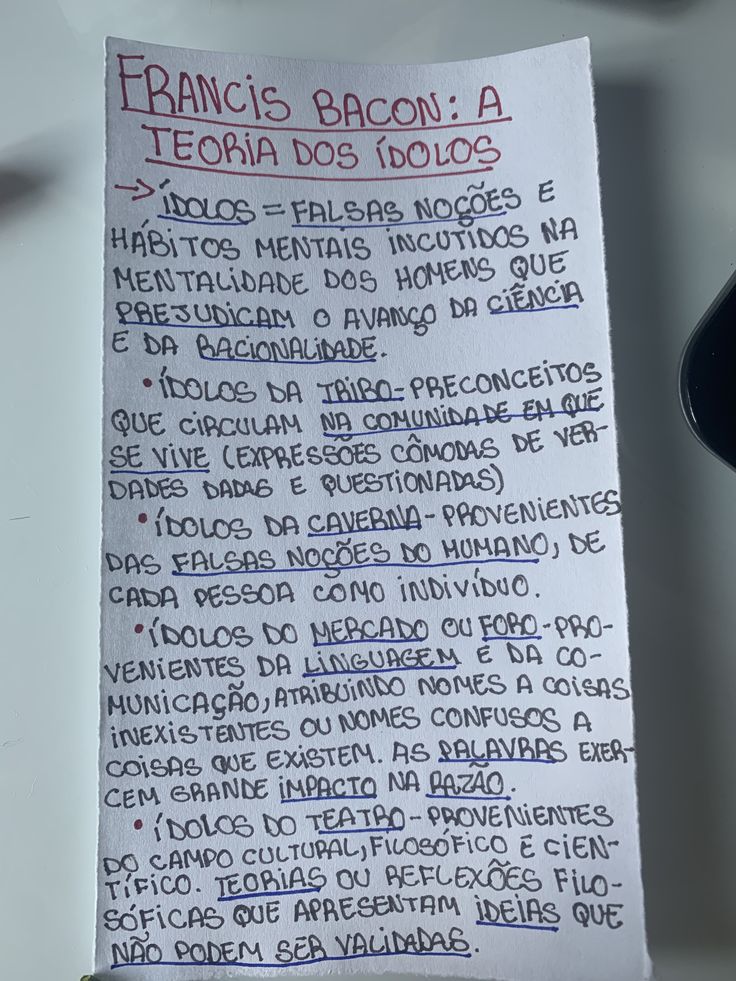 FRANCIS BACON: A
TEORIA DOS ÍDOLOS
→ ÍDOLOS = FALSAS NOÇÕES E
HÁBITOS MENTAIS INCUTIDOS NA
MENTALIDADE DOS HOMENS QUE
PREJUDICAM O AVANÇO DA CIÊNCIA
E DA RACIONALIDADE.
• ÍDOLOS DA TRIBO - PRECONCEITOS
QUE CIRCULAM NA COMUNIDADE EM QUE
SE VIVE (EXPRESSÕES CÔMODAS DE VER-
DADES DADAS E QUESTIONADAS)
• ÍDOLOS DA CAVERNA - PROVENIENTES
DAS FALSAS NOÇÕES DO HUMANO, DE
CADA PESSOA COMO INDIVÍDUO.
• ÍDOLOS DO MERCADO OU FORO - PRO-
VENIENTES DA LINGUAGEM E DA CO-
MUNICAÇÃO, ATRIBUINDO NOMES A COISAS
INEXISTENTES OU NOMES CONFUSOS A
COISAS QUE EXISTEM. AS PALAVRAS EXER-
CEM GRANDE IMPACTO NA RAZÃO.
• ÍDOLOS DO TEATRO - PROVENIENTES
DO CAMPO CULTURAL, FILOSÓFICO E CIEN-
TÍFICO. TEORIAS OU REFLEXÕES FILO-
SÓFICAS QUE APRESENTAM IDEIAS QUE
NÃO PODEM SER VALIDADAS.